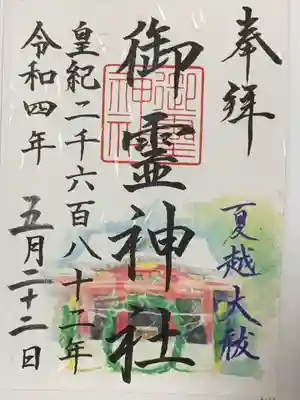 奉拝
御霊神社
御霊神社
皇紀二千六百八十二年
令和四年 五月二十二日
夏越大祓